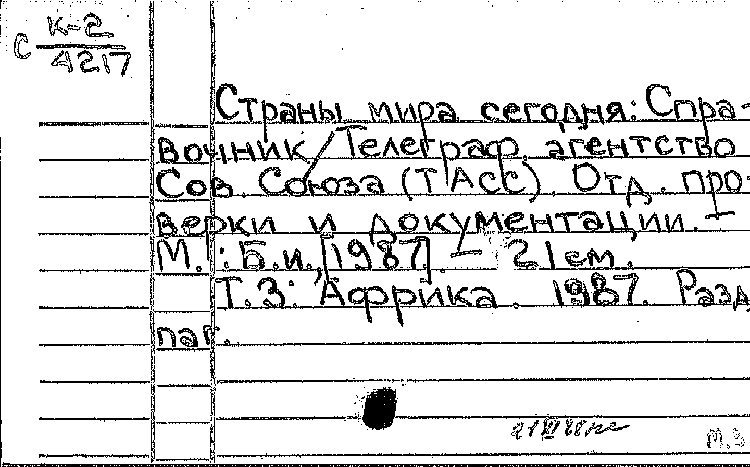 С К-2
4217
Страны мира сегодня: Спра-
вочник / Телеграф. агентство
Сов. Союза (ТАСС). Отд. про-
верки и документации. –
М.: Б.и., [1987]. – 21 см.
Т. 3: Африка. 1987. Разд.
паг.
М.З